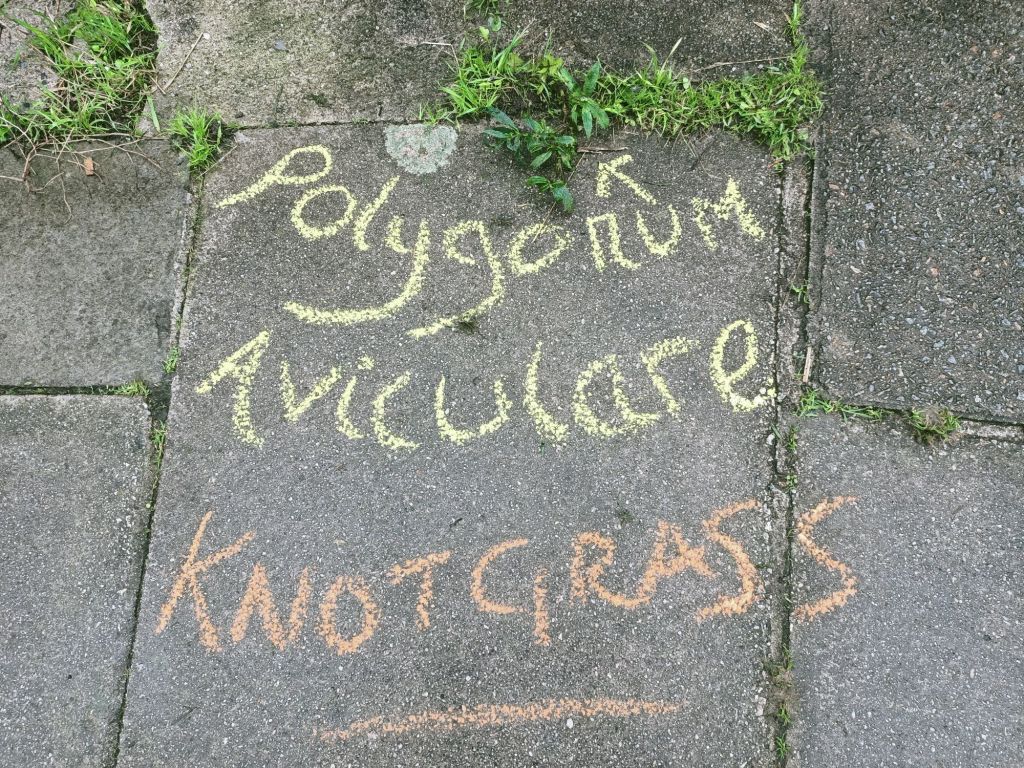 Polygonum
Aviculare
KNOTGRASS